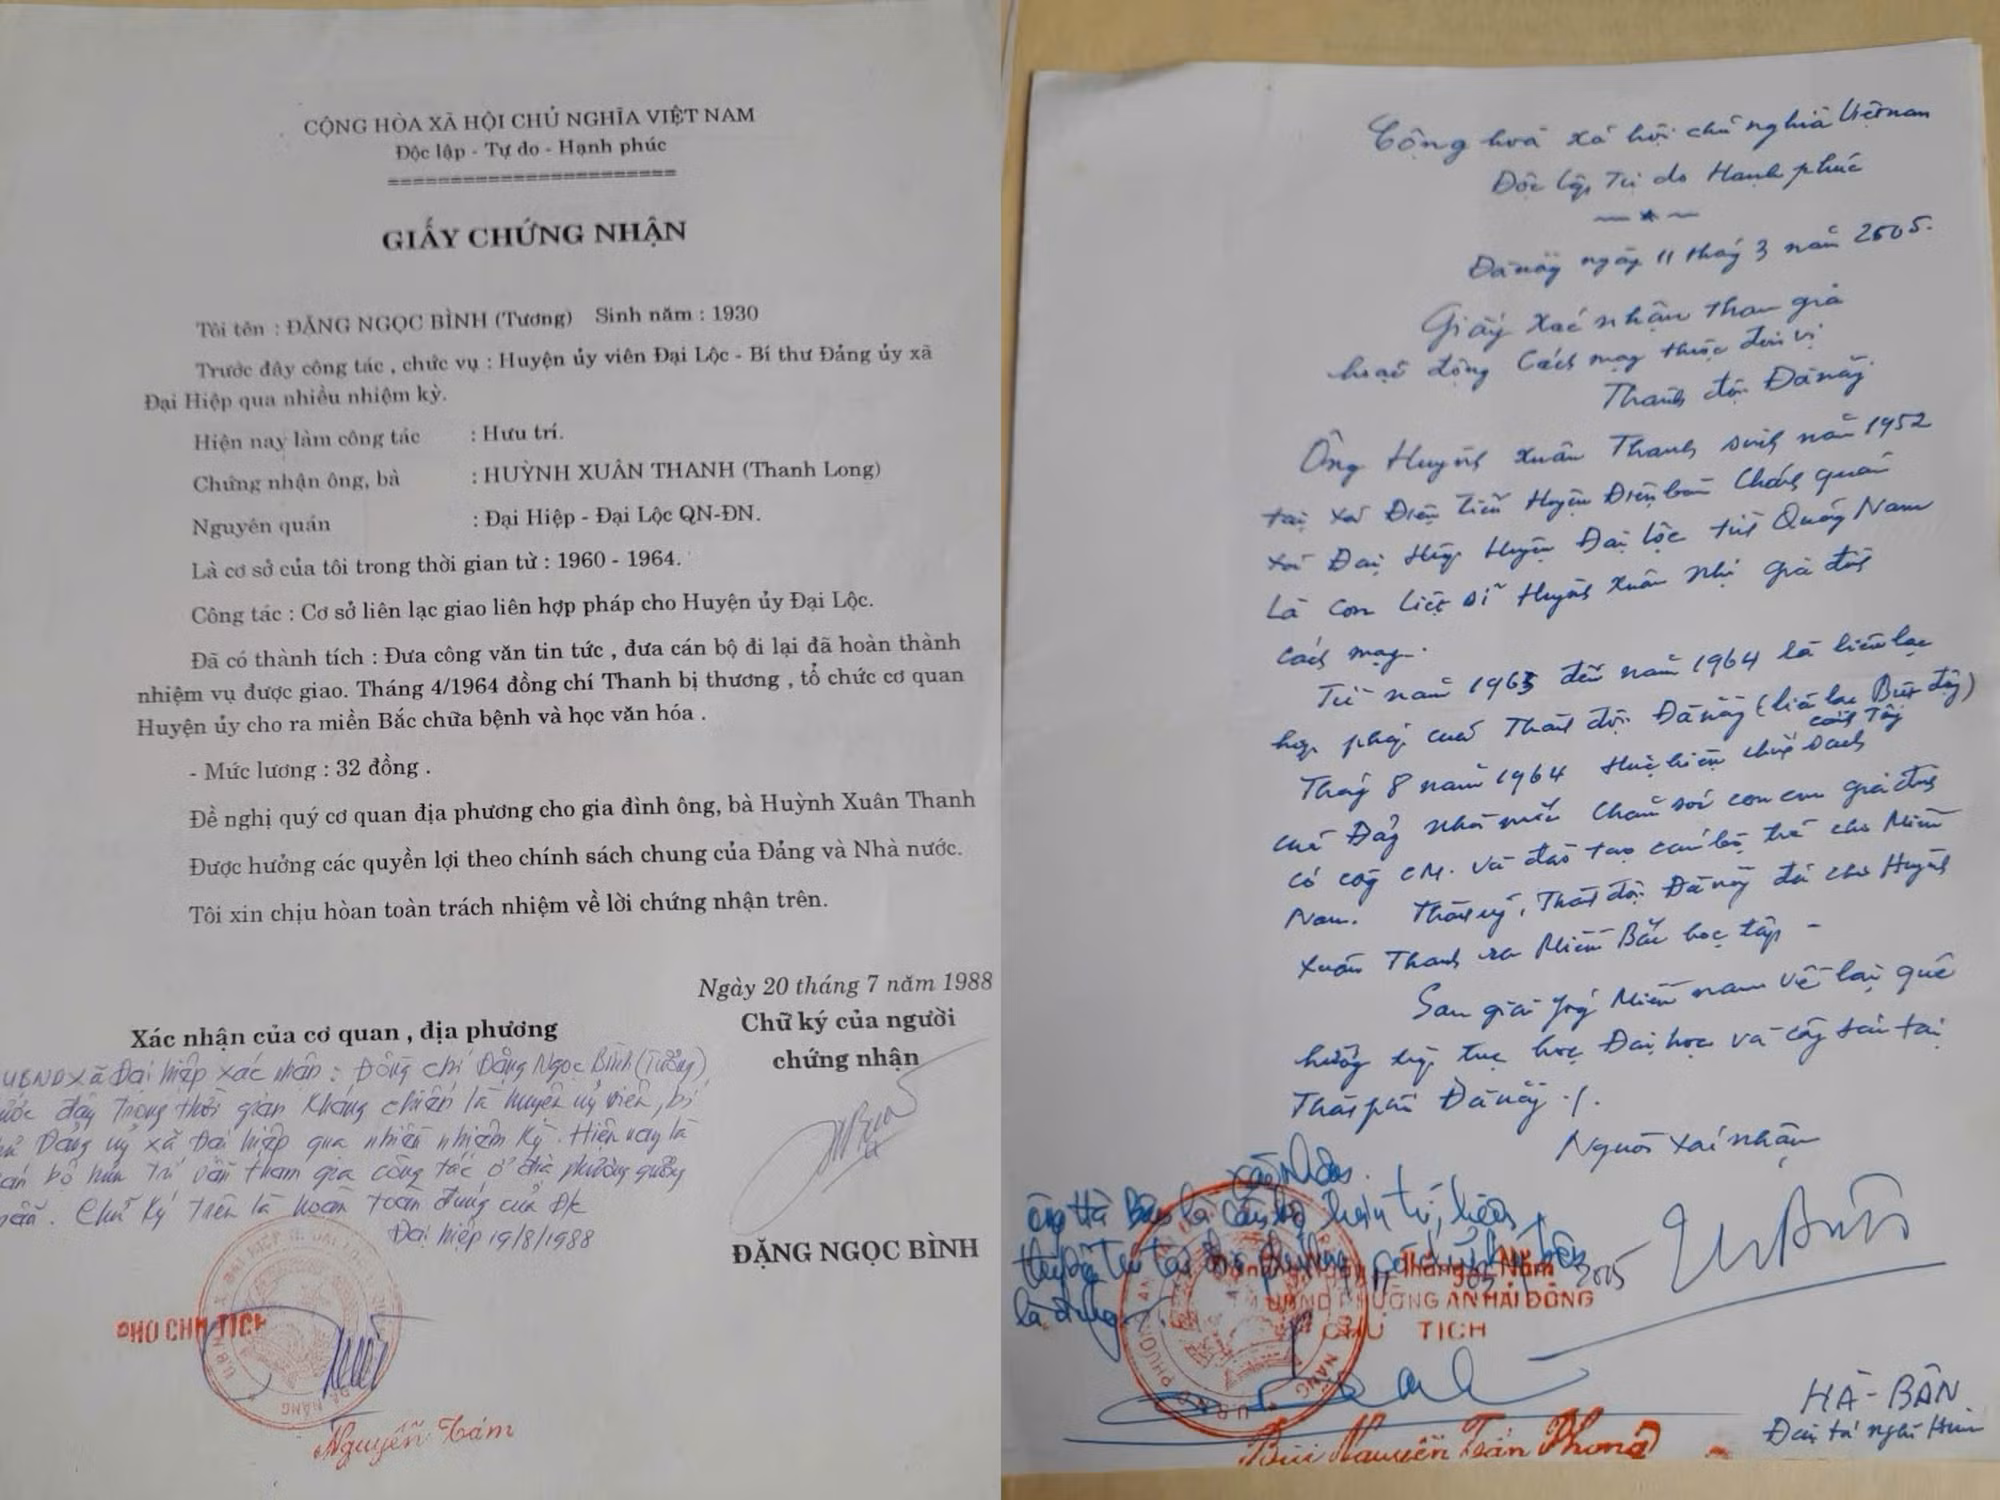 CỘNG HÒA XÃ HỘI CHỦ NGHĨA VIỆT NAM
Độc lập - Tự do - Hạnh phúc
=======================
GIẤY CHỨNG NHẬN
Tôi tên : ĐẶNG NGỌC BÌNH (Tương) Sinh năm : 1930
Trước đây công tác , chức vụ : Huyện ủy viên Đại Lộc - Bí thư Đảng ủy xã
Đại Hiệp qua nhiều nhiệm kỳ.
Hiện nay làm công tác : Hưu trí.
Chứng nhận ông, bà : HUỲNH XUÂN THANH (Thanh Long)
Nguyên quán : Đại Hiệp - Đại Lộc QN-ĐN.
Là cơ sở của tôi trong thời gian từ : 1960 - 1964.
Công tác : Cơ sở liên lạc giao liên hợp pháp cho Huyện ủy Đại Lộc.
Đã có thành tích : Đưa công văn tin tức , đưa cán bộ đi lại đã hoàn thành
nhiệm vụ được giao. Tháng 4/1964 đồng chí Thanh bị thương , tổ chức cơ quan
Huyện ủy cho ra miền Bắc chữa bệnh và học văn hóa .
- Mức lương : 32 đồng .
Đề nghị quý cơ quan địa phương cho gia đình ông, bà Huỳnh Xuân Thanh
Được hưởng các quyền lợi theo chính sách chung của Đảng và Nhà nước.
Tôi xin chịu hoàn toàn trách nhiệm về lời chứng nhận trên.
Ngày 20 tháng 7 năm 1988
Xác nhận của cơ quan , địa phương
Chữ ký của người
chứng nhận
UBND Xã Đại hiệp xác nhận : Đồng chí Đặng Ngọc Bình (Tưởng)
đây trong thời gian kháng chiến là huyện uỷ viên, bí
Đảng uỷ xã Đại hiệp qua nhiều nhiệm kỳ. Hiện nay là
bộ hưu trí vẫn tham gia công tác ở địa phương
Chữ ký trên là hoàn toàn đúng của Đ/c
Đại hiệp 19/8/1988
ĐẶNG NGỌC BÌNH
PHÓ CHỦ TỊCH
Nguyễn Tám
Cộng hoà xã hội chủ nghĩa Việt nam
Độc lập Tự do Hạnh phúc
Đà nẵng ngày 11 tháng 3 năm 2005.
Giấy xác nhận tham gia
hoạt động Cách mạng thuộc đơn vị
Thành đội Đà nẵng
Ông Huỳnh Xuân Thanh sinh năm 1952
tại xã Điện Tiến Huyện Điện bàn Chánh quán
xã Đại Hiệp Huyện Đại Lộc tỉnh Quảng Nam
Là con liệt sĩ Huỳnh Xuân Nhị gia đình
cách mạng.
Từ năm 1963 đến năm 1964 là liên lạc
hợp pháp của Thành đội Đà nẵng (liên lạc Biệt động)
công tác
Tháng 8 năm 1964 thực hiện chính sách
của Đảng nhà nước chăm sóc con em gia đình
có công CM. và đào tạo cán bộ trẻ cho Miền
Nam. Thành uỷ, Thành đội Đà nẵng đã cho Huỳnh
Xuân Thanh ra Miền Bắc học tập -
Sau giải phóng Miền nam về lại quê
hương tiếp tục học Đại học và công tác tại
Thành phố Đà nẵng ./.
Người xác nhận
ông Hà Bân là cán bộ hưu trí, hiện
là đúng
2005
UBND PHƯỜNG AN HẢI ĐÔNG
CHỦ TỊCH
Bùi Nguyễn Toán Phong
HÀ - BÂN
Đại tá nghỉ Hưu